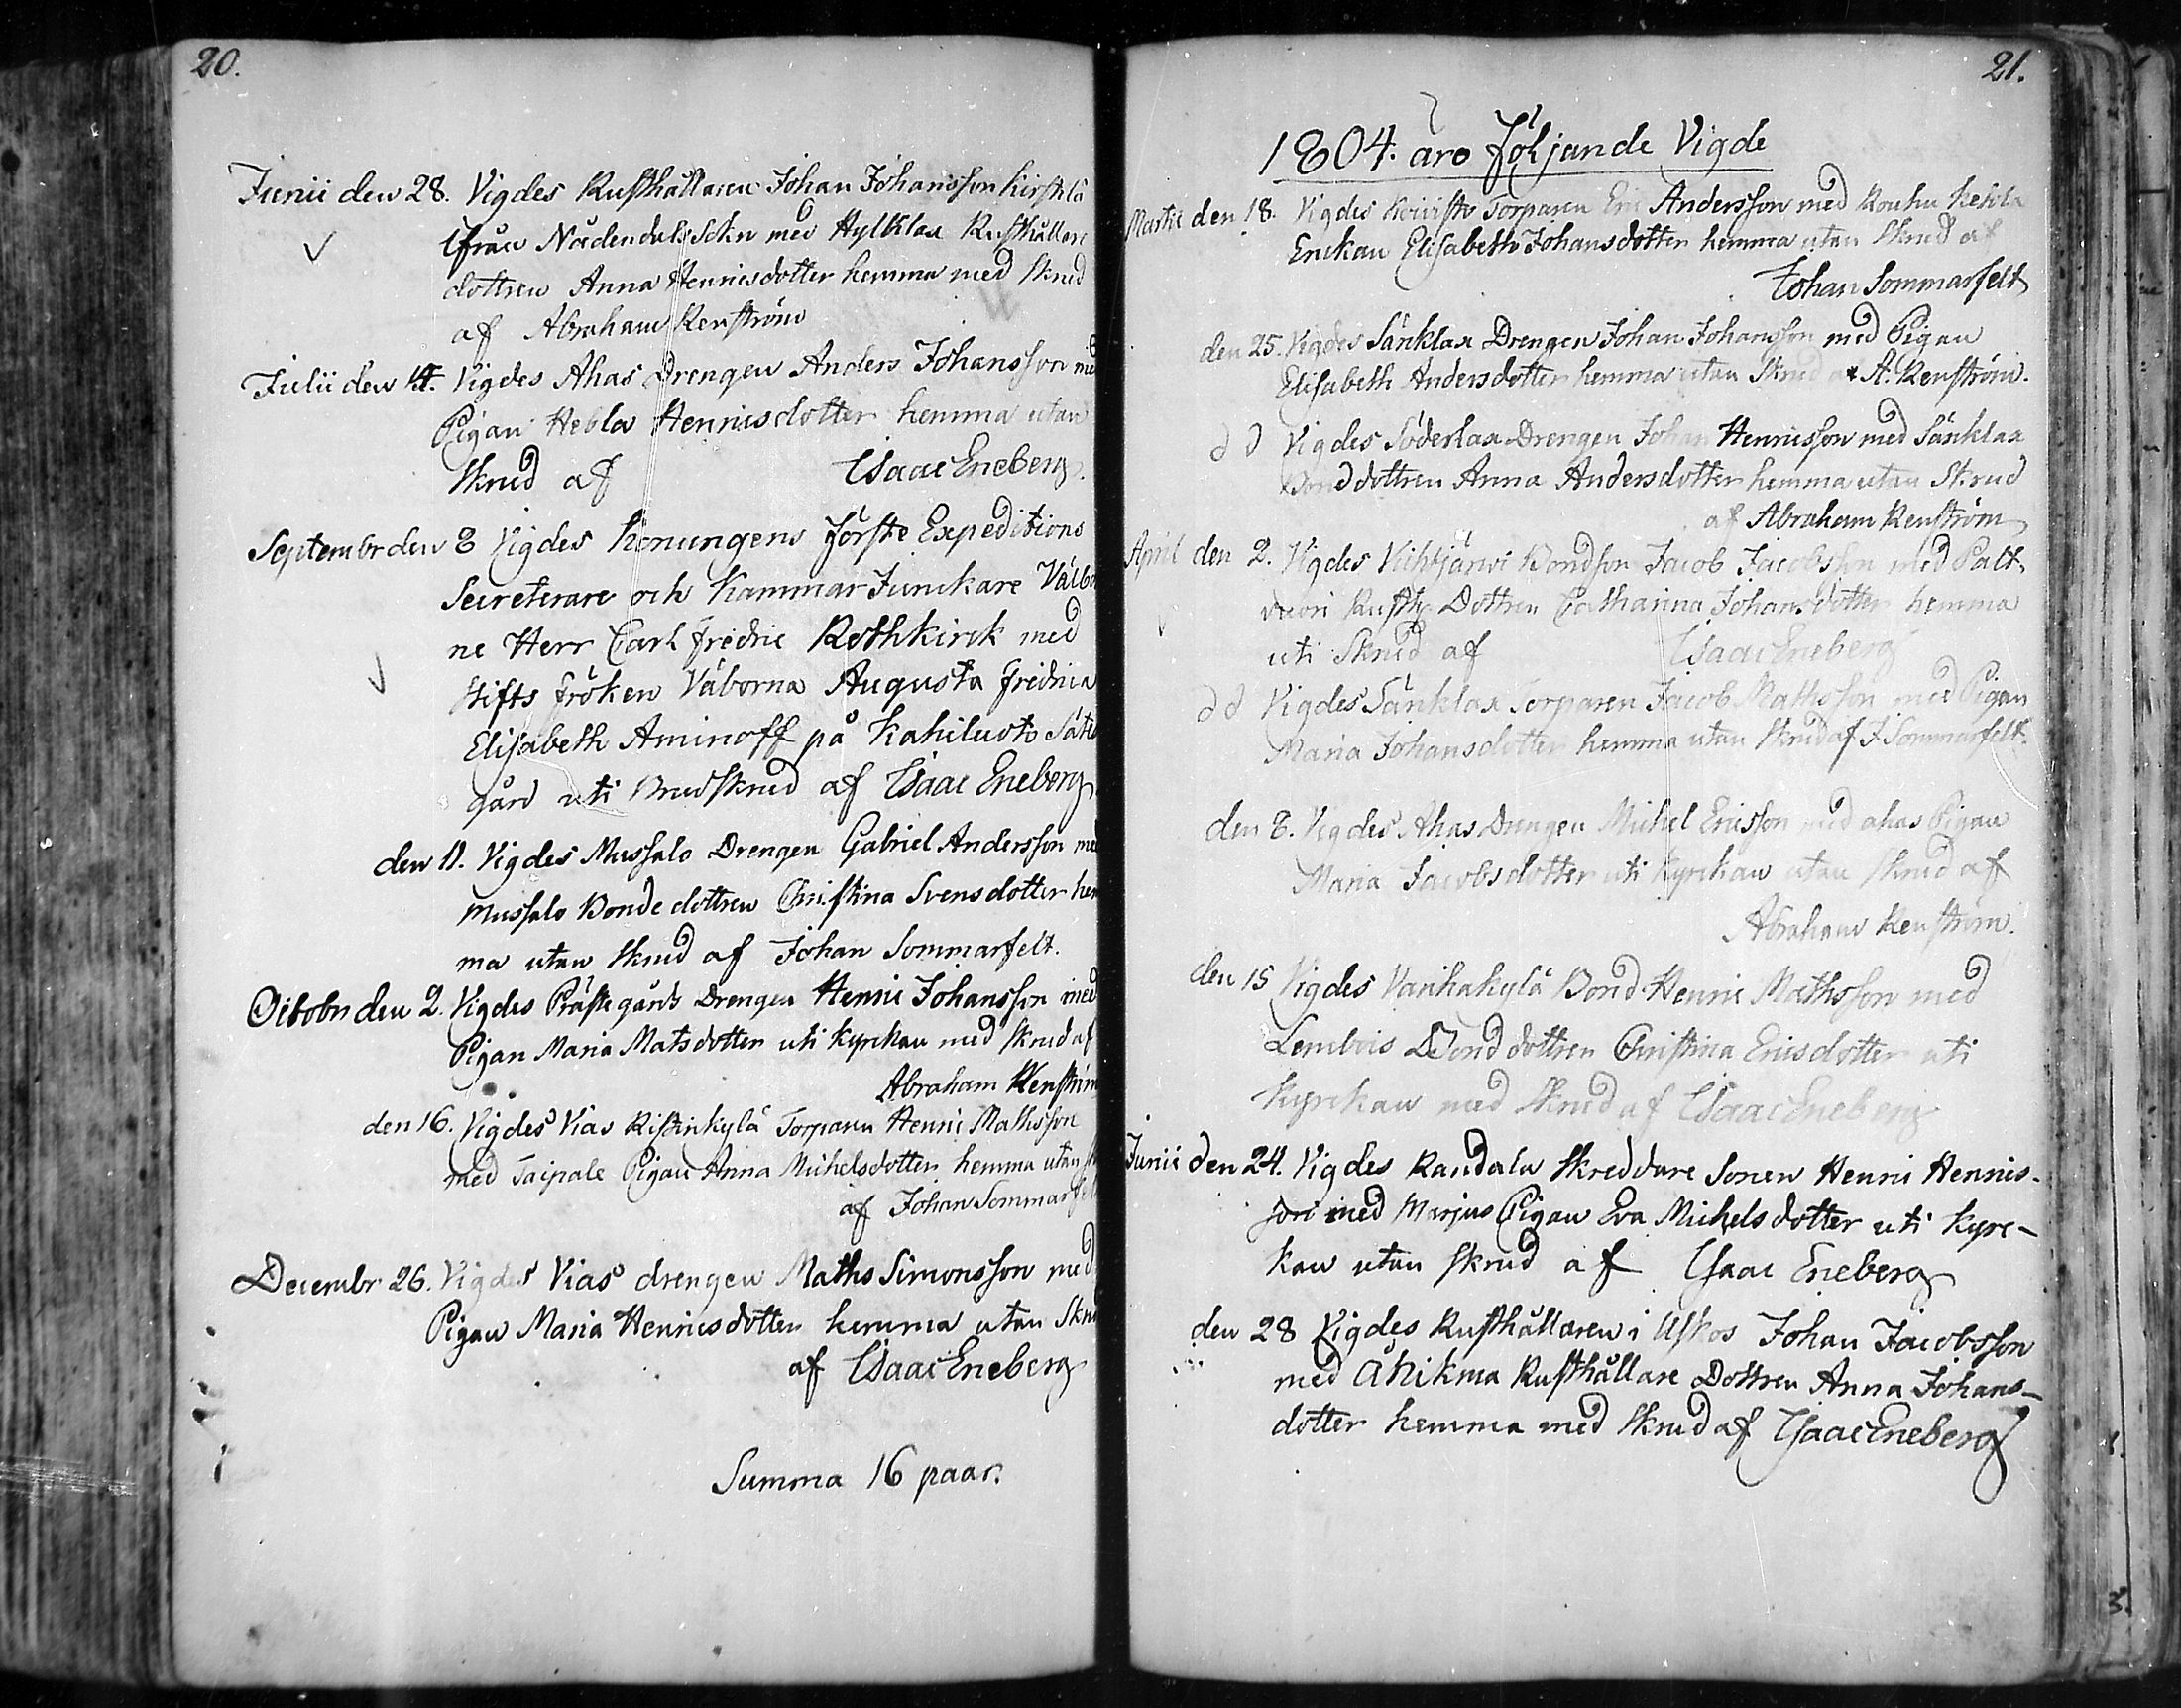 20.
Junii den 28. Vigdes Rusthållaren Johan Johansson
ifrån Nådendals Sokn med Hylklax Rusthållare
dottren Anna Henricsdotter hemma med Skrud
af Abraham Renström
Julii den Vigdes Ahas Drengen Anders Johansson med
Pigan Hebla Henricsdotter hemma utan
Skrud af Isaac Eneberg.
Septembr den 8 Vigdes Konungens förste Expeditions
Secreterare och Kammar Junckare Välbor
ne Herr Carl Fredric Rothkirck med
Stifts fröken Välborna Augusta Fredrica
Elisabeth Aminoff på Kahiluoto Säte
gård uti Brudskrud af Isaac Eneberg
den 11. Vigdes Mussalo Drengen Gabriel Andersson med
Mussalo Bonde dottren Christina Svensdotter hem
ma utan Skrud af Johan Sommarfelt.
Octobr den 2. Vigdes Prästegårds Drengen Henric Johansson med
Pigan Maria Matsdotter uti Kyrckan med Skrud af
Abraham Renström
den 16. Vigdes Vias Ristinkylä Torparen Henric Mathsson
med Taipale Pigan Anna Michelsdotter hemma utan
af Johan Sommarfelt
Decembr 26. Vigdes Vias drengen Maths Simonsson med
Pigan Maria Henricsdotter hemma utan Skrud
af Isaac Eneberg
Summa 16 paar.
21.
1804. äro följande Vigde
Martii den 18. Vigdes Koivisto Torparen Eric Andersson med Rouhu
Enckan Elisabeth Johansdotter hemma utan Skrud af
Johan Sommarfelt
den 25. Vigdes Sänklax Drengen Johan Johansson med Pigan
Elisabeth Andersdotter hemma utan Skrud af A. Renström.
d d Vigdes Söderlax Drengen Johan Henricsson med Sänklax
Bond dottren Anna Andersdotter hemma utan Skrud
af Abraham Renström
April den 2. Vigdes Vihtjärvi Bondson Jacob Jacobsson med Palt-
vuori Rusth. Dottren Catharina Johansdotter hemma
uti Skrud af Isaac Eneberg
d d Vigdes Sänklax Torparen Jacob Mathsson med Pigan
Maria Johansdotter hemma utan Skrud af J Sommarfelt.
den 8. Vigdes Ahas Drengen Michel Ericsson med ahas Pigan
Maria Jacobsdotter uti Kyrckan utan Skrud af
Abraham Renström.
den 15 Vigdes Vanhakylä Bond Henric Mathsson med
Lembois Bond dottren Christina Ericsdotter uti
Kyrckan med Skrud af Isaac Eneberg
Junii den 24. Vigdes Randala Skreddare Sonen Henric Henrics-
son med Marjus Pigan Eva Michelsdotter uti Kyrc-
kan utan Skrud af Isaac Eneberg
den 28 Vigdes Rusthållaren i Uskos Johan Jacobsson
med Rusthållare Dottren Anna Johans-
dotter hemma med Skrud af Isaac Eneberg